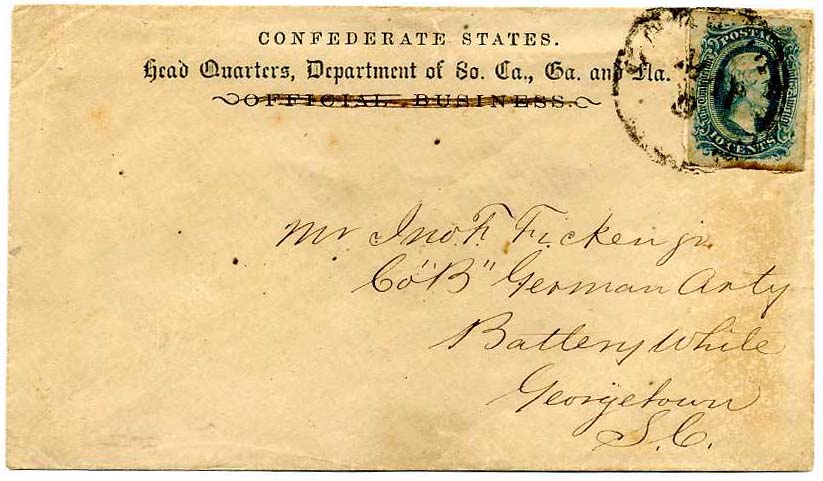 CONFEDERATE STATES.
Head Quarters, Department of So. Ca., Ga. and Fla.
OFFICIAL BUSINESS.
POSTAGE
10 CENTS
Mr Jno. F. Ficken jr.
Co "B" German Arty
Battery White
Georgetown
S.C.